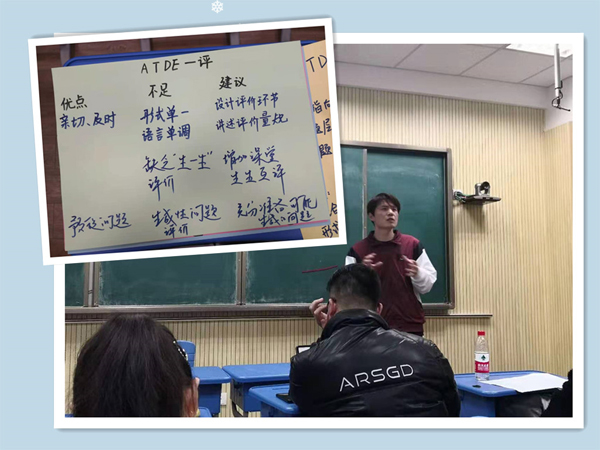 ATDE一评
优点 不足 建议
亲切、及时 形式单一 设计评价环节
语言单调 讲述评价量规
缺乏“生一生” 增加课堂
评价 生生互评
预设问题 生成性问题 充分准备可能
评价 生成的问题
TD
题
ARSGD